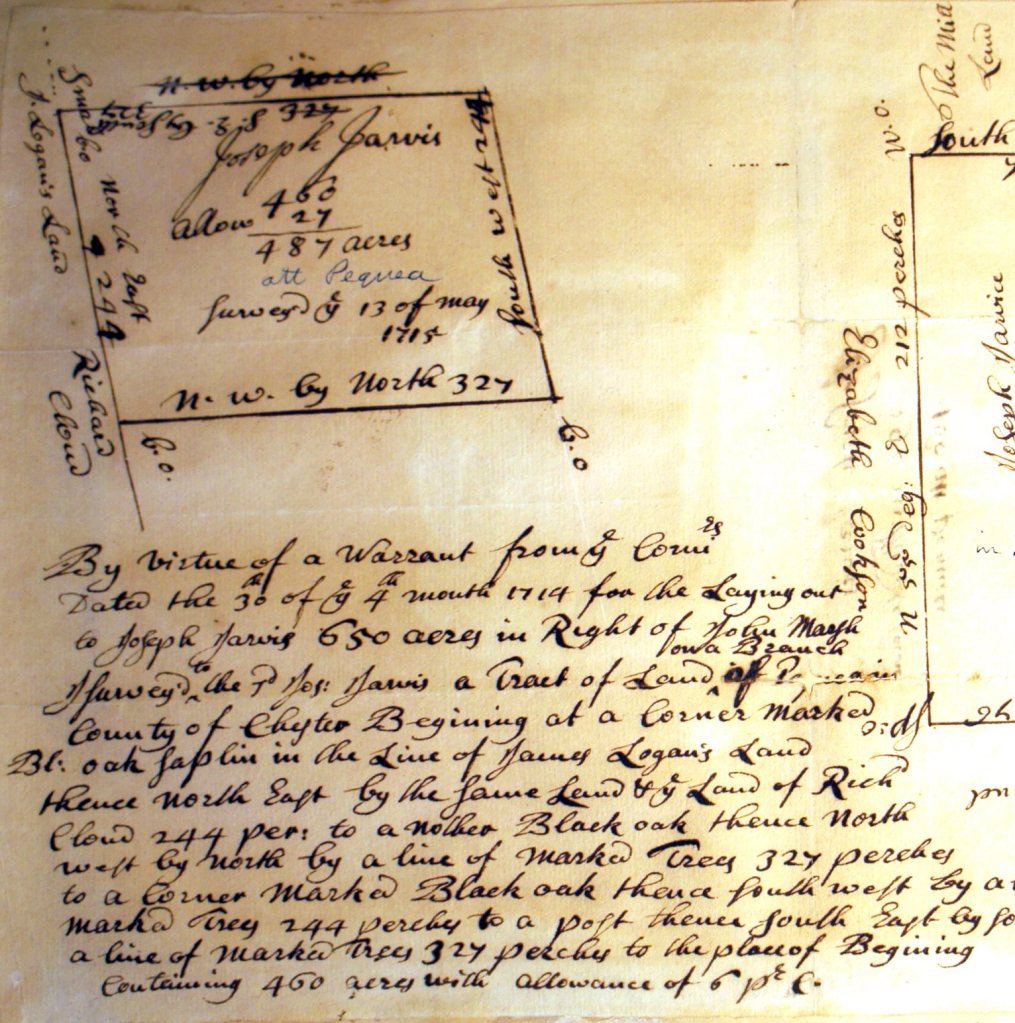 N. W. by North
S: E: By South 327
327
Joseph Jarvis
460
allow 27
487 acres
att Pequea
Survey'd ye 13 of may
1715
N. W. by North 327
South west 244
Sma bo North East 244
J. Logan's Land
Richard
Cloud
b. o.
b. o
By Virtue of a Warrant from ye Comrs
Dated the 30th of ye 4th month 1714 for the Laying out
to Joseph Jarvis 650 acres in Right of John Marsh
I Survey'd to the sd Jos: Jarvis a Tract of Land on a Branch of in
County of Chester Begining at a Corner Marked
Bl: oak saplin in the Line of James Logan's Land
thence North East by the same Land & ye Land of Richd
Cloud 244 per: to a nother Black oak thence North
west by North by a line of marked Trees 327 perches
to a Corner Marked Black oak thence South west by a
markd Trees 244 perches to a post thence South East by So
a line of Marked Trees 327 perches to the place of Begining
Containing 460 acres with allowance of 6 pr C.
The
Land
W. O.
South
N 55 deg: E 212 perches
Elizabeth Cookson
Joseph Jarvice
in